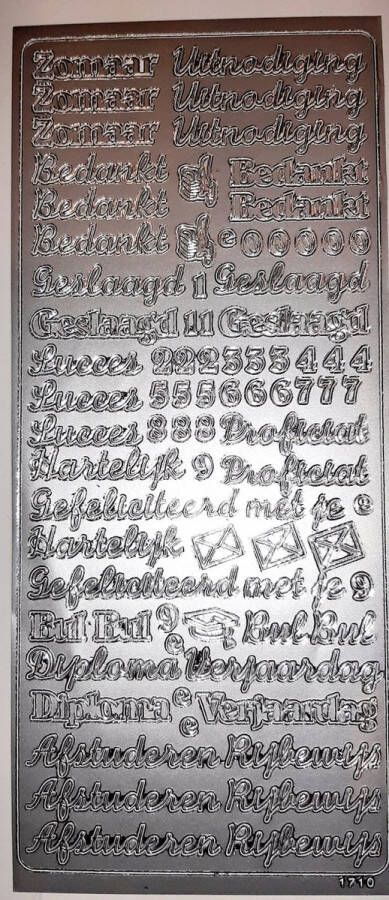 Zomaar Uitnodiging
Zomaar Uitnodiging
Zomaar Uitnodiging
Bedankt Bedankt
Bedankt Bedankt
Bedankt e 0 0 0 0 0 0
Geslaagd 1 Geslaagd
Geslaagd 11 Geslaagd
Succes 222333444
Succes 555666777
Succes 888 Proficiat
Hartelijk 9 Proficiat
Gefeliciteerd met je e
Hartelijk
Gefeliciteerd met je 9
Bul Bul 9 e Bul Bul
Diploma e Verjaardag
Diploma e e Verjaardag
Afstuderen Rijbewijs
Afstuderen Rijbewijs
Afstuderen Rijbewijs
1710